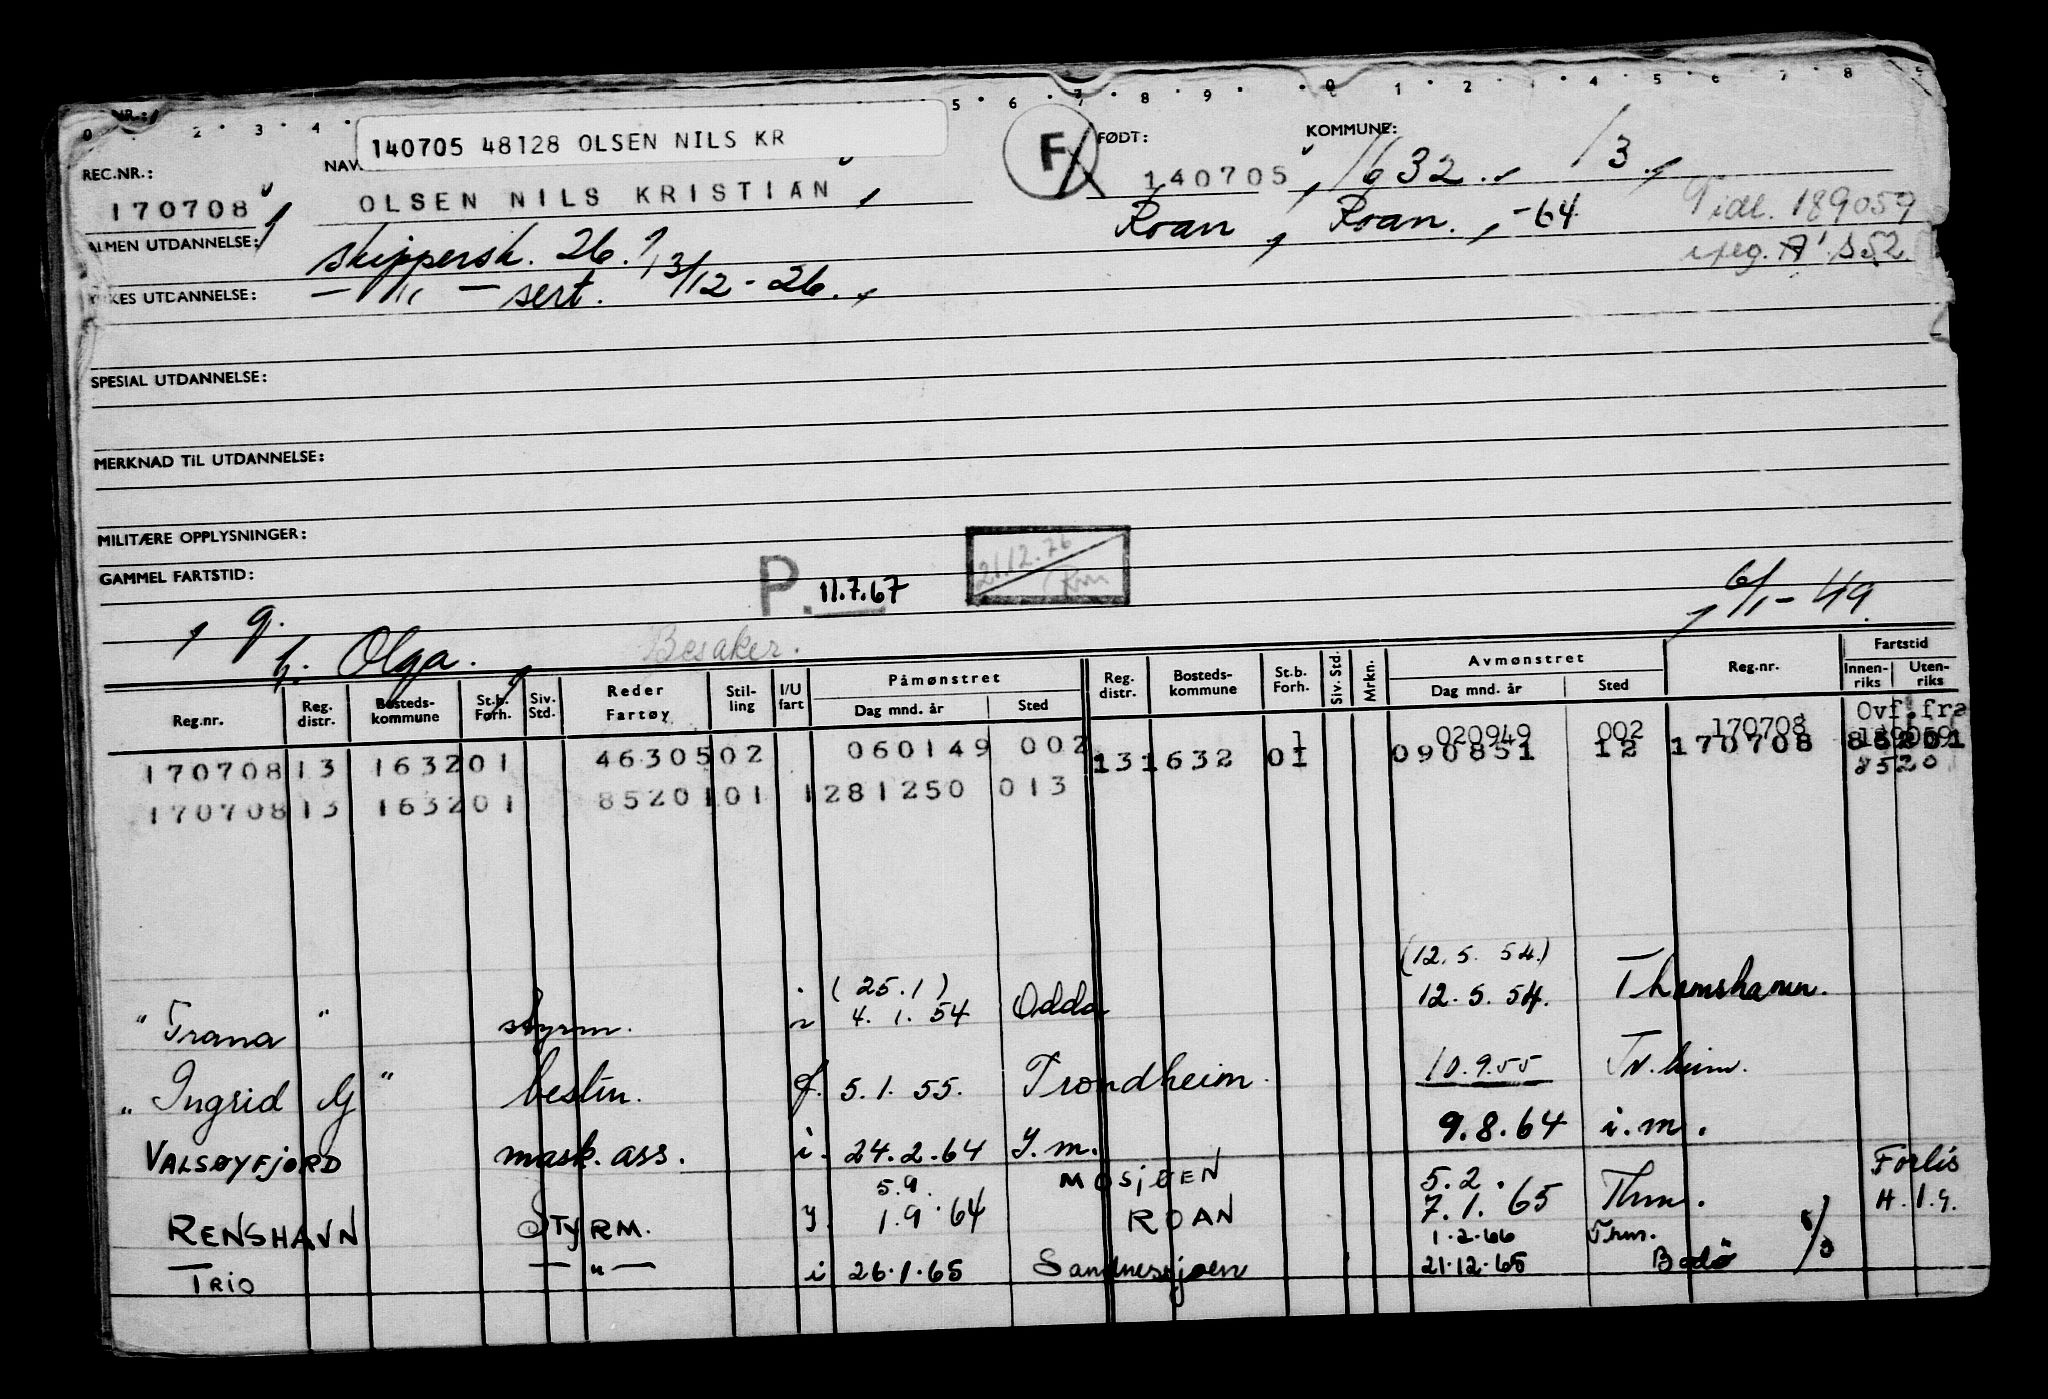 NR.:
0 2 · 3 · 4 · 5 · 6 · 7 8 9 · 0 1 2 4 5 6 7 8 9
140705 48128 OLSEN NILS KR
F
FØDT: KOMMUNE:
REC.NR.: NAV
140705, 1632., 13.,
170708, OLSEN NILS KRISTIAN,
Roan, Roan., -64. Tidl. 189059
ALMEN UTDANNELSE: skippersk. 26.
YRKES UTDANNELSE: — " — sert. 13/12-26.,
SPESIAL UTDANNELSE:
MERKNAD TIL UTDANNELSE:
MILITÆRE OPPLYSNINGER:
21.12.76
GAMMEL FARTSTID: P. 11.7.67
, g. , 6/1-49.
h. Olga. , Besaker.
Reg.nr. Reg. distr. Bosteds-kommune St.b. Forh. Siv. Std. Reder Fartøy Stil-ling I/U fart Påmønstret Dag mnd. år Sted Reg. distr. Bosteds-kommune St.b. Forh. Siv. Std. Mrkn. Avmønstret Dag mnd. år Sted Reg.nr. Fartstid Innen-riks Uten-riks
1 020949 002 170708 Ovf.fra
170708 13 1632 01 46305 02 060149 002 13 1632 01 090851 12 170708 85201
8520
170708 13 1632 01 85201 01 1 281250 013
(25.1) (12.5.54.)
"Trana" styrm. i 4.1.54 Odda 12.5.54. Thamshamn.
"Ingrid G" bestm. f. 5.1.55. Trondheim. 10.9.55 Tr.heim.
VALSØYFJORD mask.ass. i. 24.2.64 I.m. 9.8.64 i.m.
5.9. MOSJØEN 5.2. Forlis
RENSHAVN STYRM. I. 1.9.64 ROAN 7.1.65 Thm. H.I.9.
1.2.66 Thm.
TRIO — " — i 26.1.65 Sandnessjøen 21.12.65 Bodø